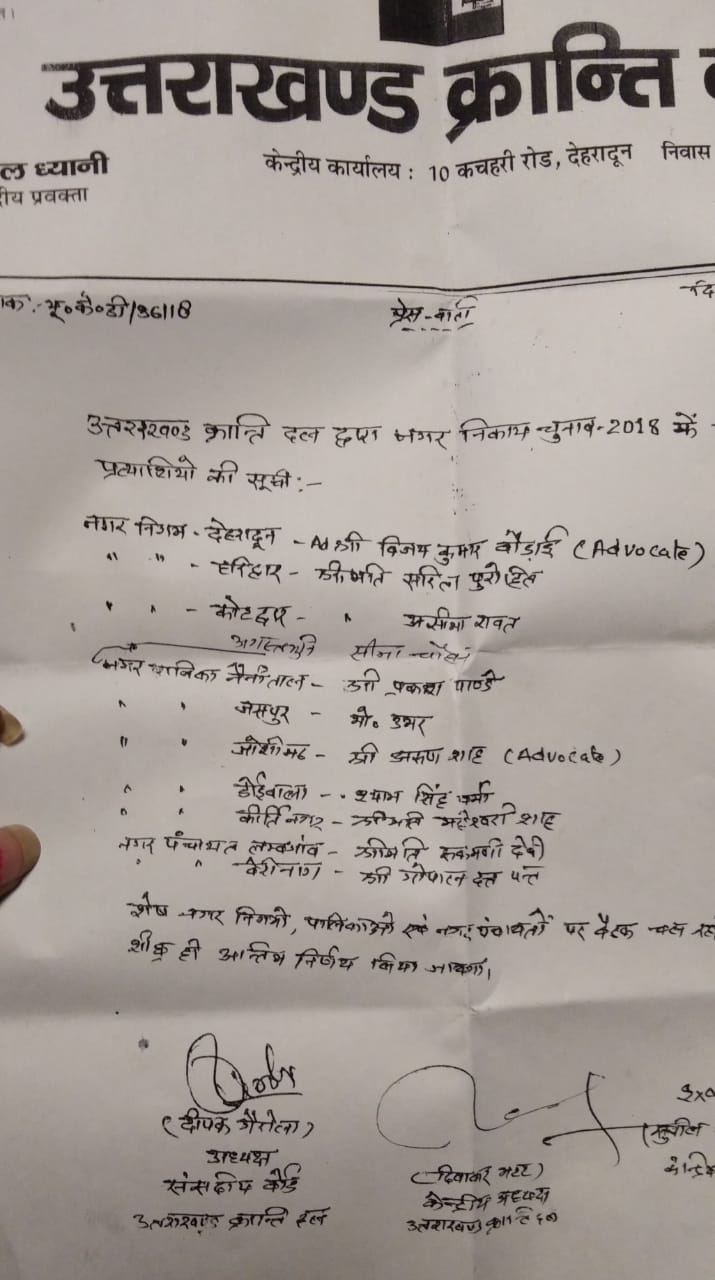 उत्तराखण्ड क्रान्ति
ल ध्यानी
ीय प्रवक्ता
केन्द्रीय कार्यालय : 10 कचहरी रोड, देहरादून निवास
प्रेस-वार्ता
उत्तराखण्ड क्रान्ति दल द्वारा नगर निकाय चुनाव-2018 में
प्रत्याशियो की सूची :-
नगर निगम - देहरादून - Ad श्री विजय कुमार बौड़ाई (Advocate)
" " - हरिद्वार - श्रीमति सरिता पुरोहित
" " - कोटद्वार - " असीमा रावत
अगस्तमुनि सीमा
नगर पालिका नैनीताल - श्री प्रकाश पाण्डे
" " जसपुर - मो० उमर
" " जोशीमठ - श्री अरुण शाह (Advocate)
" " डोईवाला - श्याम सिंह
" " कीर्तिनगर - श्रीमति महेश्वरी शाह
नगर पंचायत लम्बगांव - श्रीमति रुकमणी देवी
" बेरीनाग - श्री गोपाल दत्त पन्त
शेष नगर निगमो, पालिकाओ एवं नगर पंचायतों पर बैठक चल
शीघ्र ही अन्तिम निर्णय किया जायेगा।
(दीपक गैरोला)
अध्यक्ष
संसदीय बोर्ड
उत्तराखण्ड क्रान्ति दल
(दिवाकर भट्ट)
केन्द्रीय अध्यक्ष
उत्तराखण्ड क्रान्ति दल
(सुनील